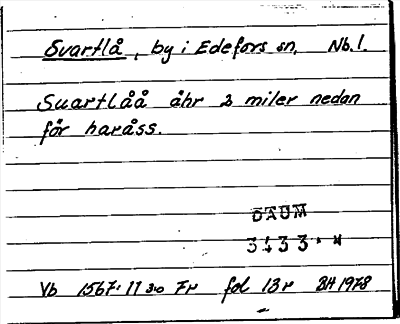 Svartlå, by i Edefors sn, Nb.l.
Suartlåå åhr 2 miler nedan
för haråss.
DAUM
3433.
Vb 1567:11 Fr fol 13r BH 1978